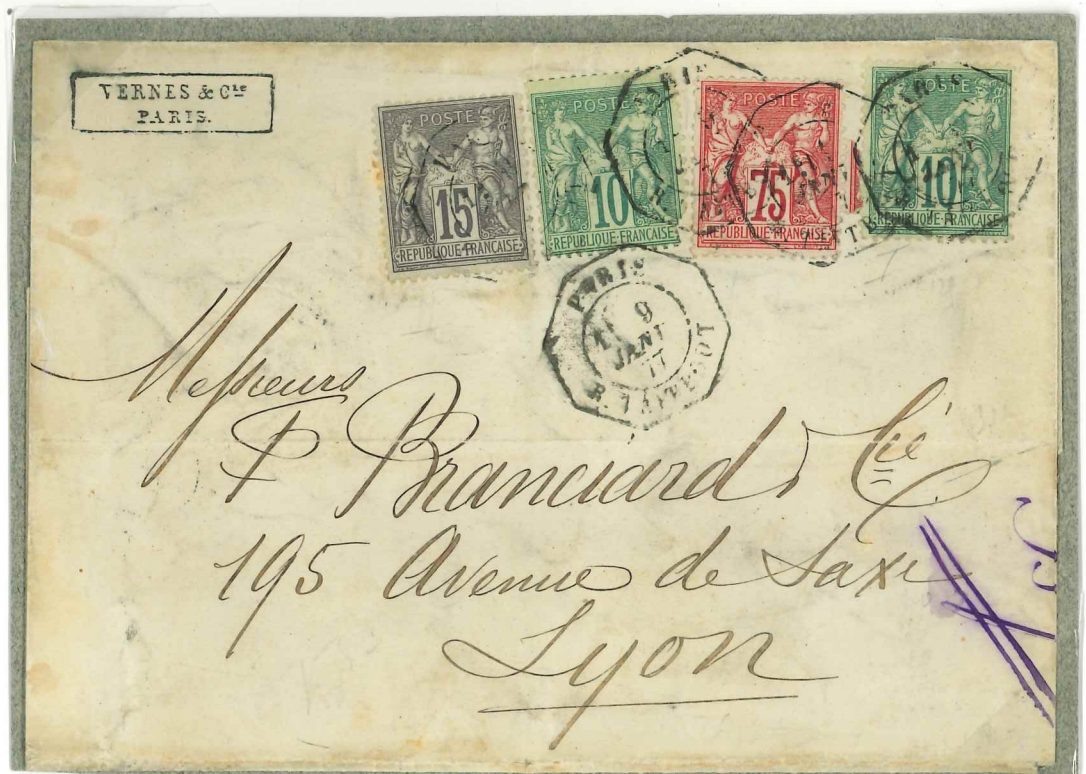 VERNES & Cie
PARIS.
POSTE
15
REPUBLIQUE FRANCAISE
POSTE
10
REPUBLIQUE FRANCAISE
POSTE
75
REPUBLIQUE FRANCAISE
POSTE
10
REPUBLIQUE FRANCAISE
PARIS
PARIS
PARIS
9
JANV
77
Messieurs
P Branciard, Cie
195 Avenue de Saxe
Lyon